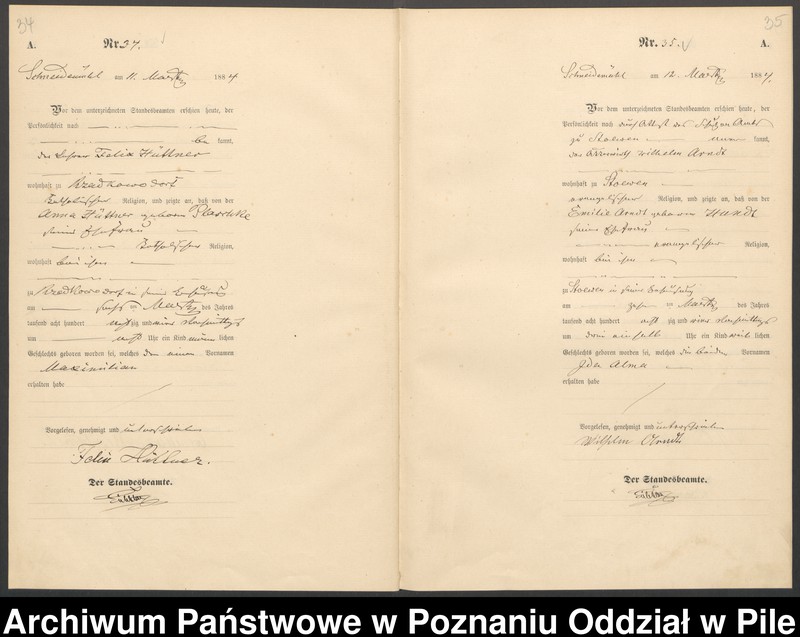 34
A.
Nr. 34.
Schneidemühl am 11. Maertz 1884
Vor dem unterzeichneten Standesbeamten erschien heute, der
Persönlichkeit nach
be kannt,
der Felix Hüttner
wohnhaft zu Brzedkowo Dorf
katholischer Religion, und zeigte an, daß von der
Anna Hüttner geborene Plaschke
seiner Ehefrau
katholischer Religion,
wohnhaft bei ihm
zu Brzedkowo Dorf in seiner Behausung
am ten Maertz des Jahres
tausend acht hundert achtzig und vier Nachmittags
um acht Uhr ein Kind männlichen
Geschlechts geboren worden sei, welches den einen Vornamen
Maximilian
erhalten habe
Vorgelesen, genehmigt und unterschrieben
Felix Hüttner.
Der Standesbeamte.
35
Nr. 35.
A.
Schneidemühl am 12. Maertz 1884.
Vor dem unterzeichneten Standesbeamten erschien heute, der
Persönlichkeit nach durch Attest des Schulzen Amts
zu Stoewen kannt,
der Wilhelm Arndt
wohnhaft zu Stoewen
evangelischer Religion, und zeigte an, daß von der
Emilie Arndt geborene Hundt
seiner Ehefrau
evangelischer Religion,
wohnhaft bei ihm
zu Stoewen in seiner Behausung
am zehnten Maertz des Jahres
tausend acht hundert achtzig und vier Nachmittags
um drei einhalb Uhr ein Kind weiblichen
Geschlechts geboren worden sei, welches die beiden Vornamen
Ida Alma
erhalten habe
Vorgelesen, genehmigt und unterschrieben
Wilhelm Arndt
Der Standesbeamte.
Archiwum Państwowe w Poznaniu Oddział w Pile